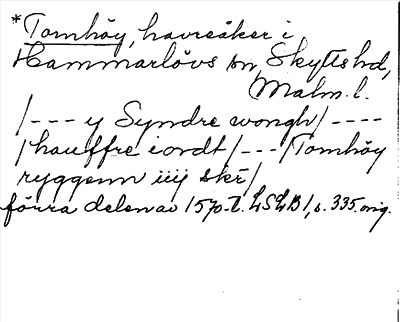 *Tomhöy, havreåker i
Hammarlövs sn, Skytts hd,
Malm. l.
/ - - - y Syndre wongh / - - - -
/ hauffre iordt / - - - / Tomhöy
ryggenn iiij skē /
förra delen av 1570-t. LSLB 1, s. 335. orig.